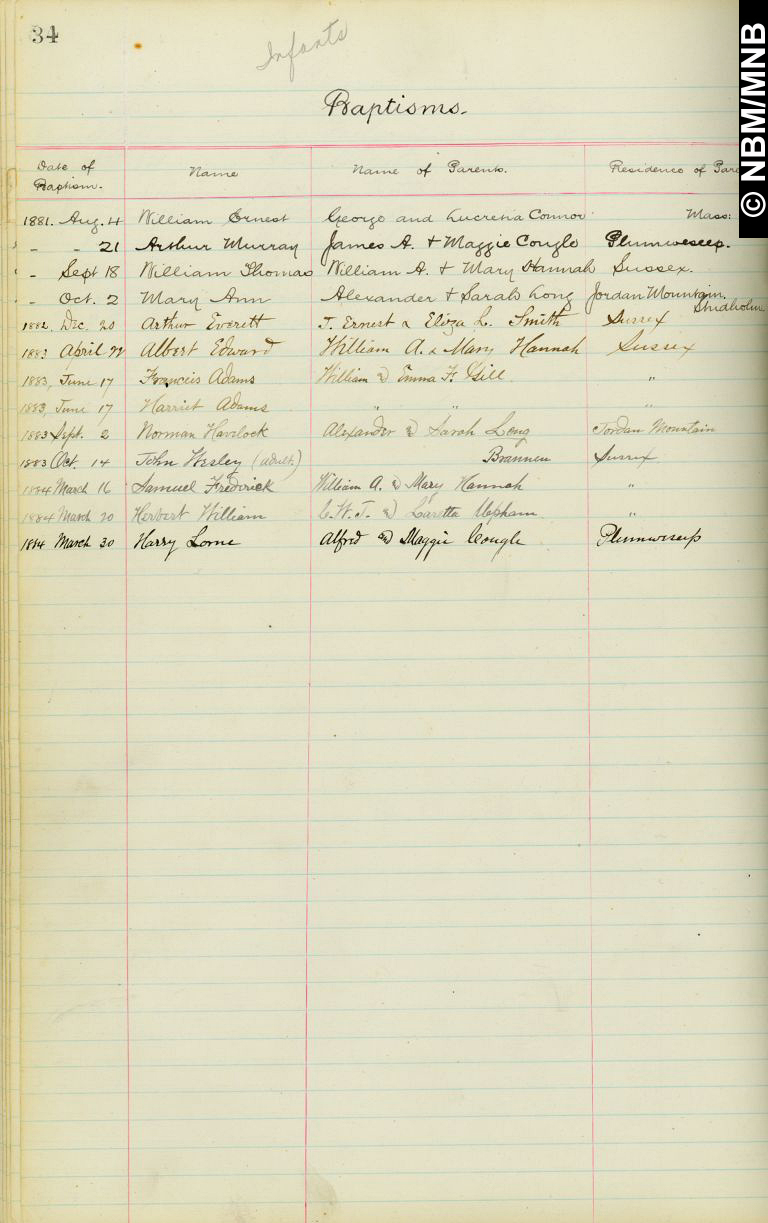 34
Infants
© NBM/MNB
Baptisms.
Date of Baptism. Name Name of Parents. Residence of Pare
1881. Aug. 4 William Ernest George and Lucretia Connor Mass:
" - - 21 Arthur Murray James A. + Maggie Cougle Plumweseep.
- Sept 18 William Thomas William A. + Mary Hannah Sussex.
- Oct. 2 Mary Ann Alexander + Sarah Long Jordan Mountain.
Studholm
1882. Dec. 20 Arthur Everett J. Ernest & Eliza L. Smith Sussex
1883 April 22 Albert Edward William A. & Mary Hannah Sussex
1883, June 17 Francis Adams William & Emma F. Gill "
1883, June 17 Harriet Adams " " "
1883 Sept. 2 Norman Havelock Alexander & Sarah Long Jordan Mountain
1883 Oct. 14 John Wesley (adult.) Brannen Sussex
1884 March 16 Samuel Frederick William A. & Mary Hannah "
1884 March 20 Herbert William C.W.T. & Laretta Upham "
1884 March 30 Harry Lorne Alfred & Maggie Cougle Plumweseep